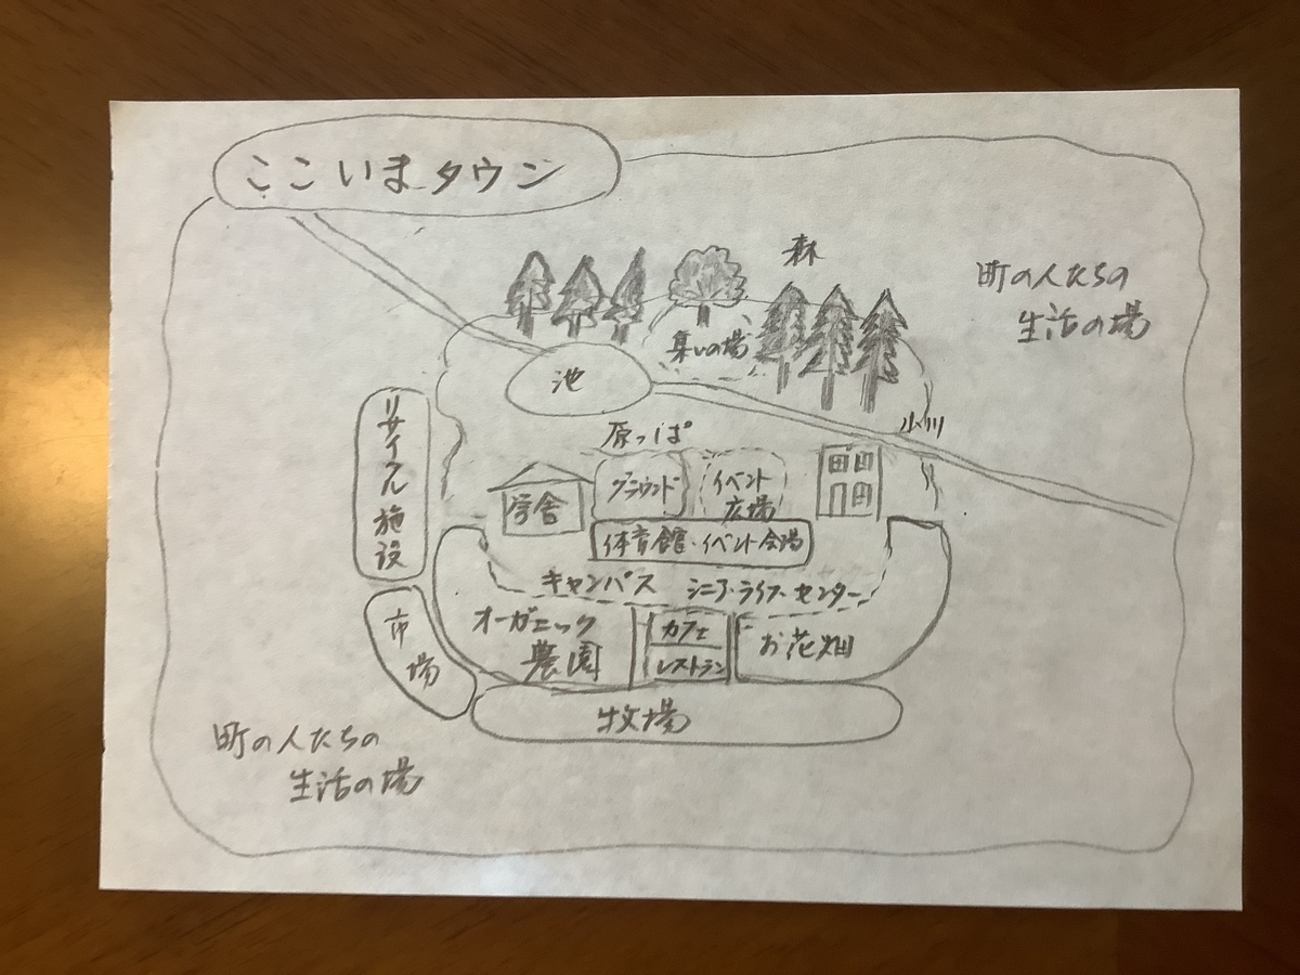 ここいまタウン
森
町の人たちの
生活の場
集いの場
池
小川
原っぱ
リサイクル施設
学舎
グラウンド
イベント
広場
体育館・イベント会場
キャンパス
シニア・ライフ・センター
市場
オーガニック
農園
カフェ
レストラン
お花畑
牧場
町の人たちの
生活の場